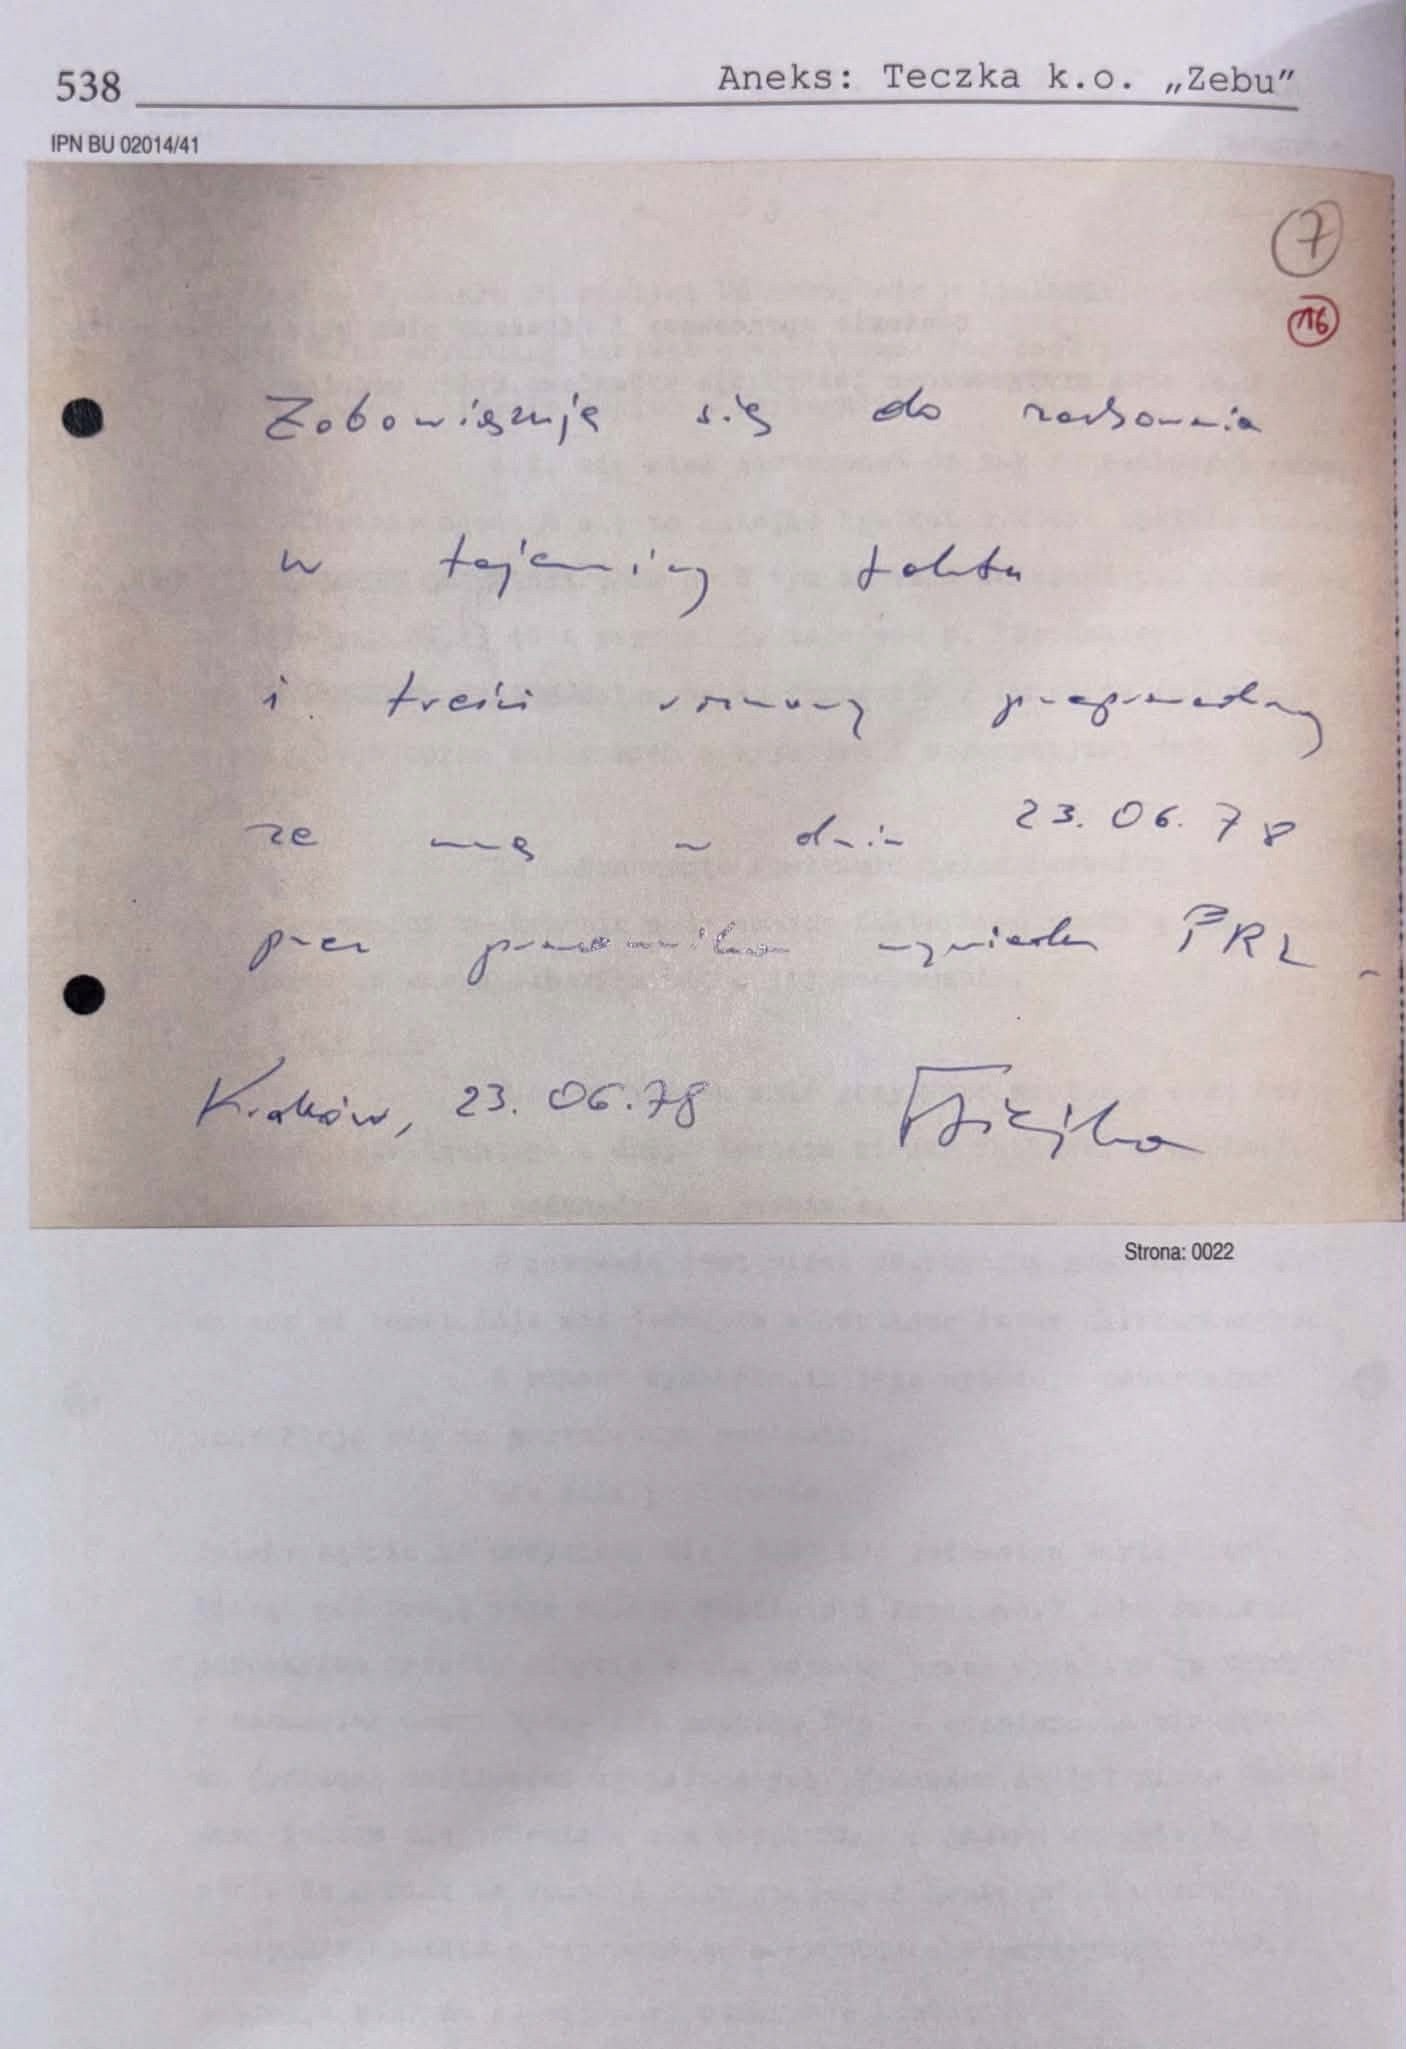 538
Aneks: Teczka k.o. „Zebu”
IPN BU 02014/41
7
16
Zobowiązuję się do zachowania
w tajemnicy faktu
i treści rozmowy przeprowadzonej
ze mną w dniu 23.06.78
przez pracownika wywiadu PRL.
Kraków, 23.06.78
Strona: 0022